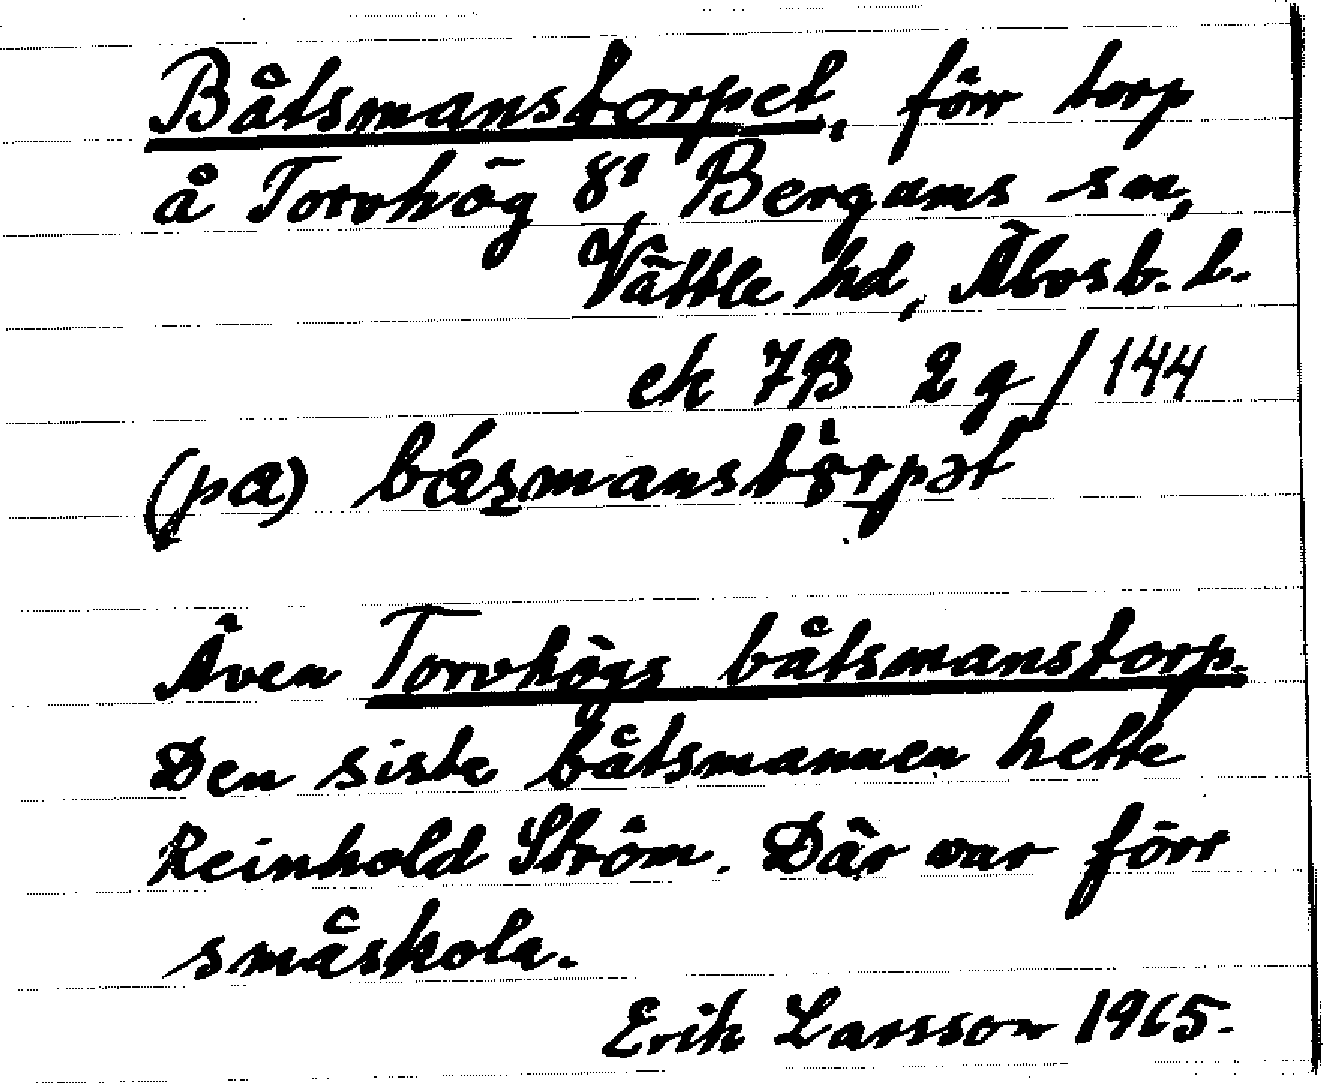 Båtsmanstorpet, förr torp
å Torvhög 8¹ Bergums sn,
Vättle hd, Älvsb. l.
ek 7B 2g/144
(pa)
Även Torvhögs båtsmanstorp.
Den siste båtsmannen hette
Reinhold Ström. Där var förr
småskola.
Erik Larsson 1965.